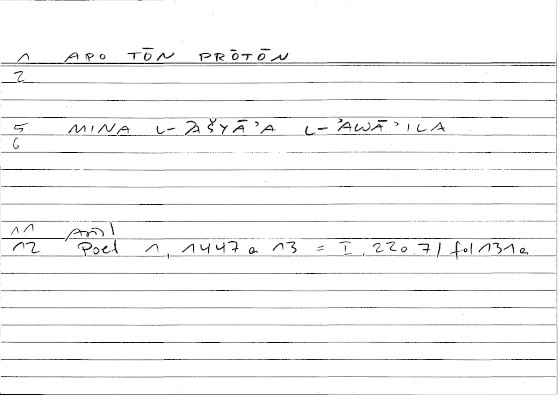 1 APO TŌN PRŌTŌN
2
5 MINA L-ʾAŠYĀʾA L-ʾAWĀʾILA
6
11
12 Poet 1, 1447 a 13 = I, 220.7/ fol 131a